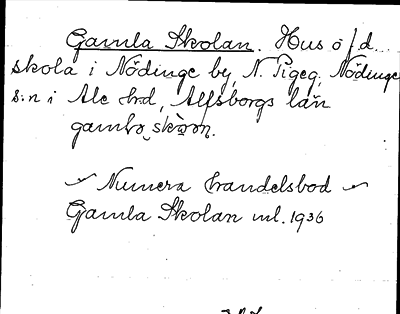 Gamla Skolan. Hus å f.d.
skola i Nödinge by, N. Tigeg, Nödinge
s:n i Ale hrd, Älfsborgs län
Numera handelsbod
Gamla Skolan ml. 1936